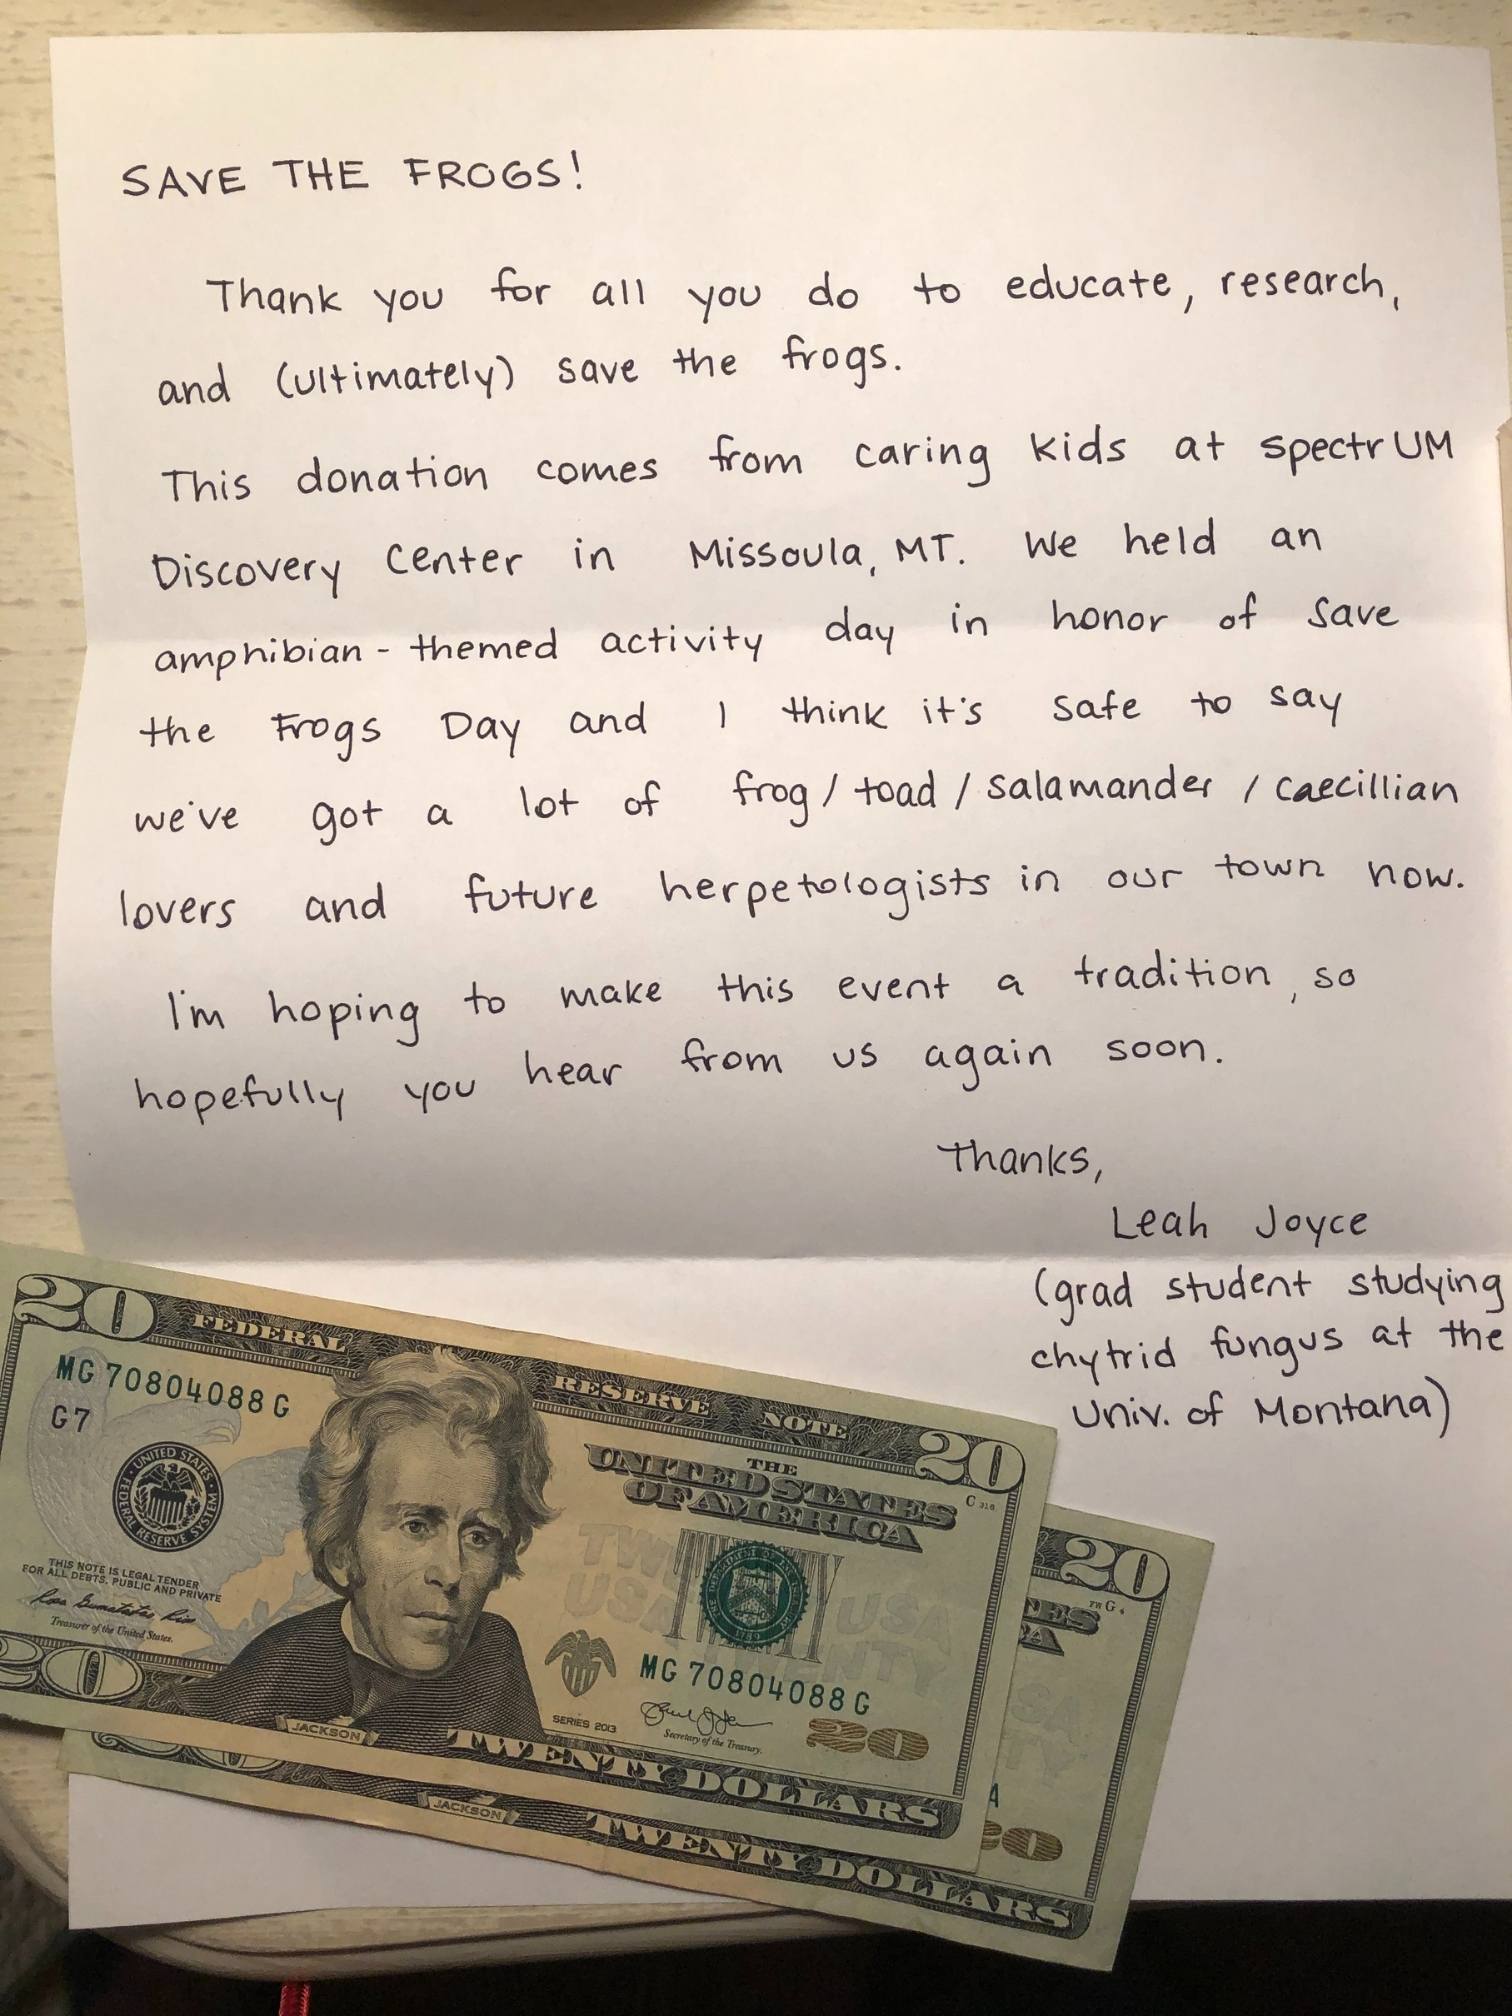 SAVE THE FROGS!
Thank you for all you do to educate, research,
and (ultimately) save the frogs.
This donation comes from caring kids at spectrUM
Discovery Center in Missoula, MT. We held an
amphibian-themed activity day in honor of Save
the Frogs Day and I think it's safe to say
we've got a lot of frog/toad/salamander/caecillian
lovers and future herpetologists in our town now.
I'm hoping to make this event a tradition, so
hopefully you hear from us again soon.
Thanks,
Leah Joyce
(grad student studying
chytrid fungus at the
Univ. of Montana)
20
FEDERAL RESERVE NOTE
20
MG 70804088 G
G7
THE
UNITED STATES
OF AMERICA
UNITED STATES
FEDERAL RESERVE SYSTEM
THIS NOTE IS LEGAL TENDER
FOR ALL DEBTS, PUBLIC AND PRIVATE
Treasurer of the United States.
TWENTY
USA
USA
TWENTY
1789
MG 70804088 G
SERIES 2013
Secretary of the Treasury.
20
20
JACKSON
TWENTY DOLLARS
20
20
JACKSON
TWENTY DOLLARS